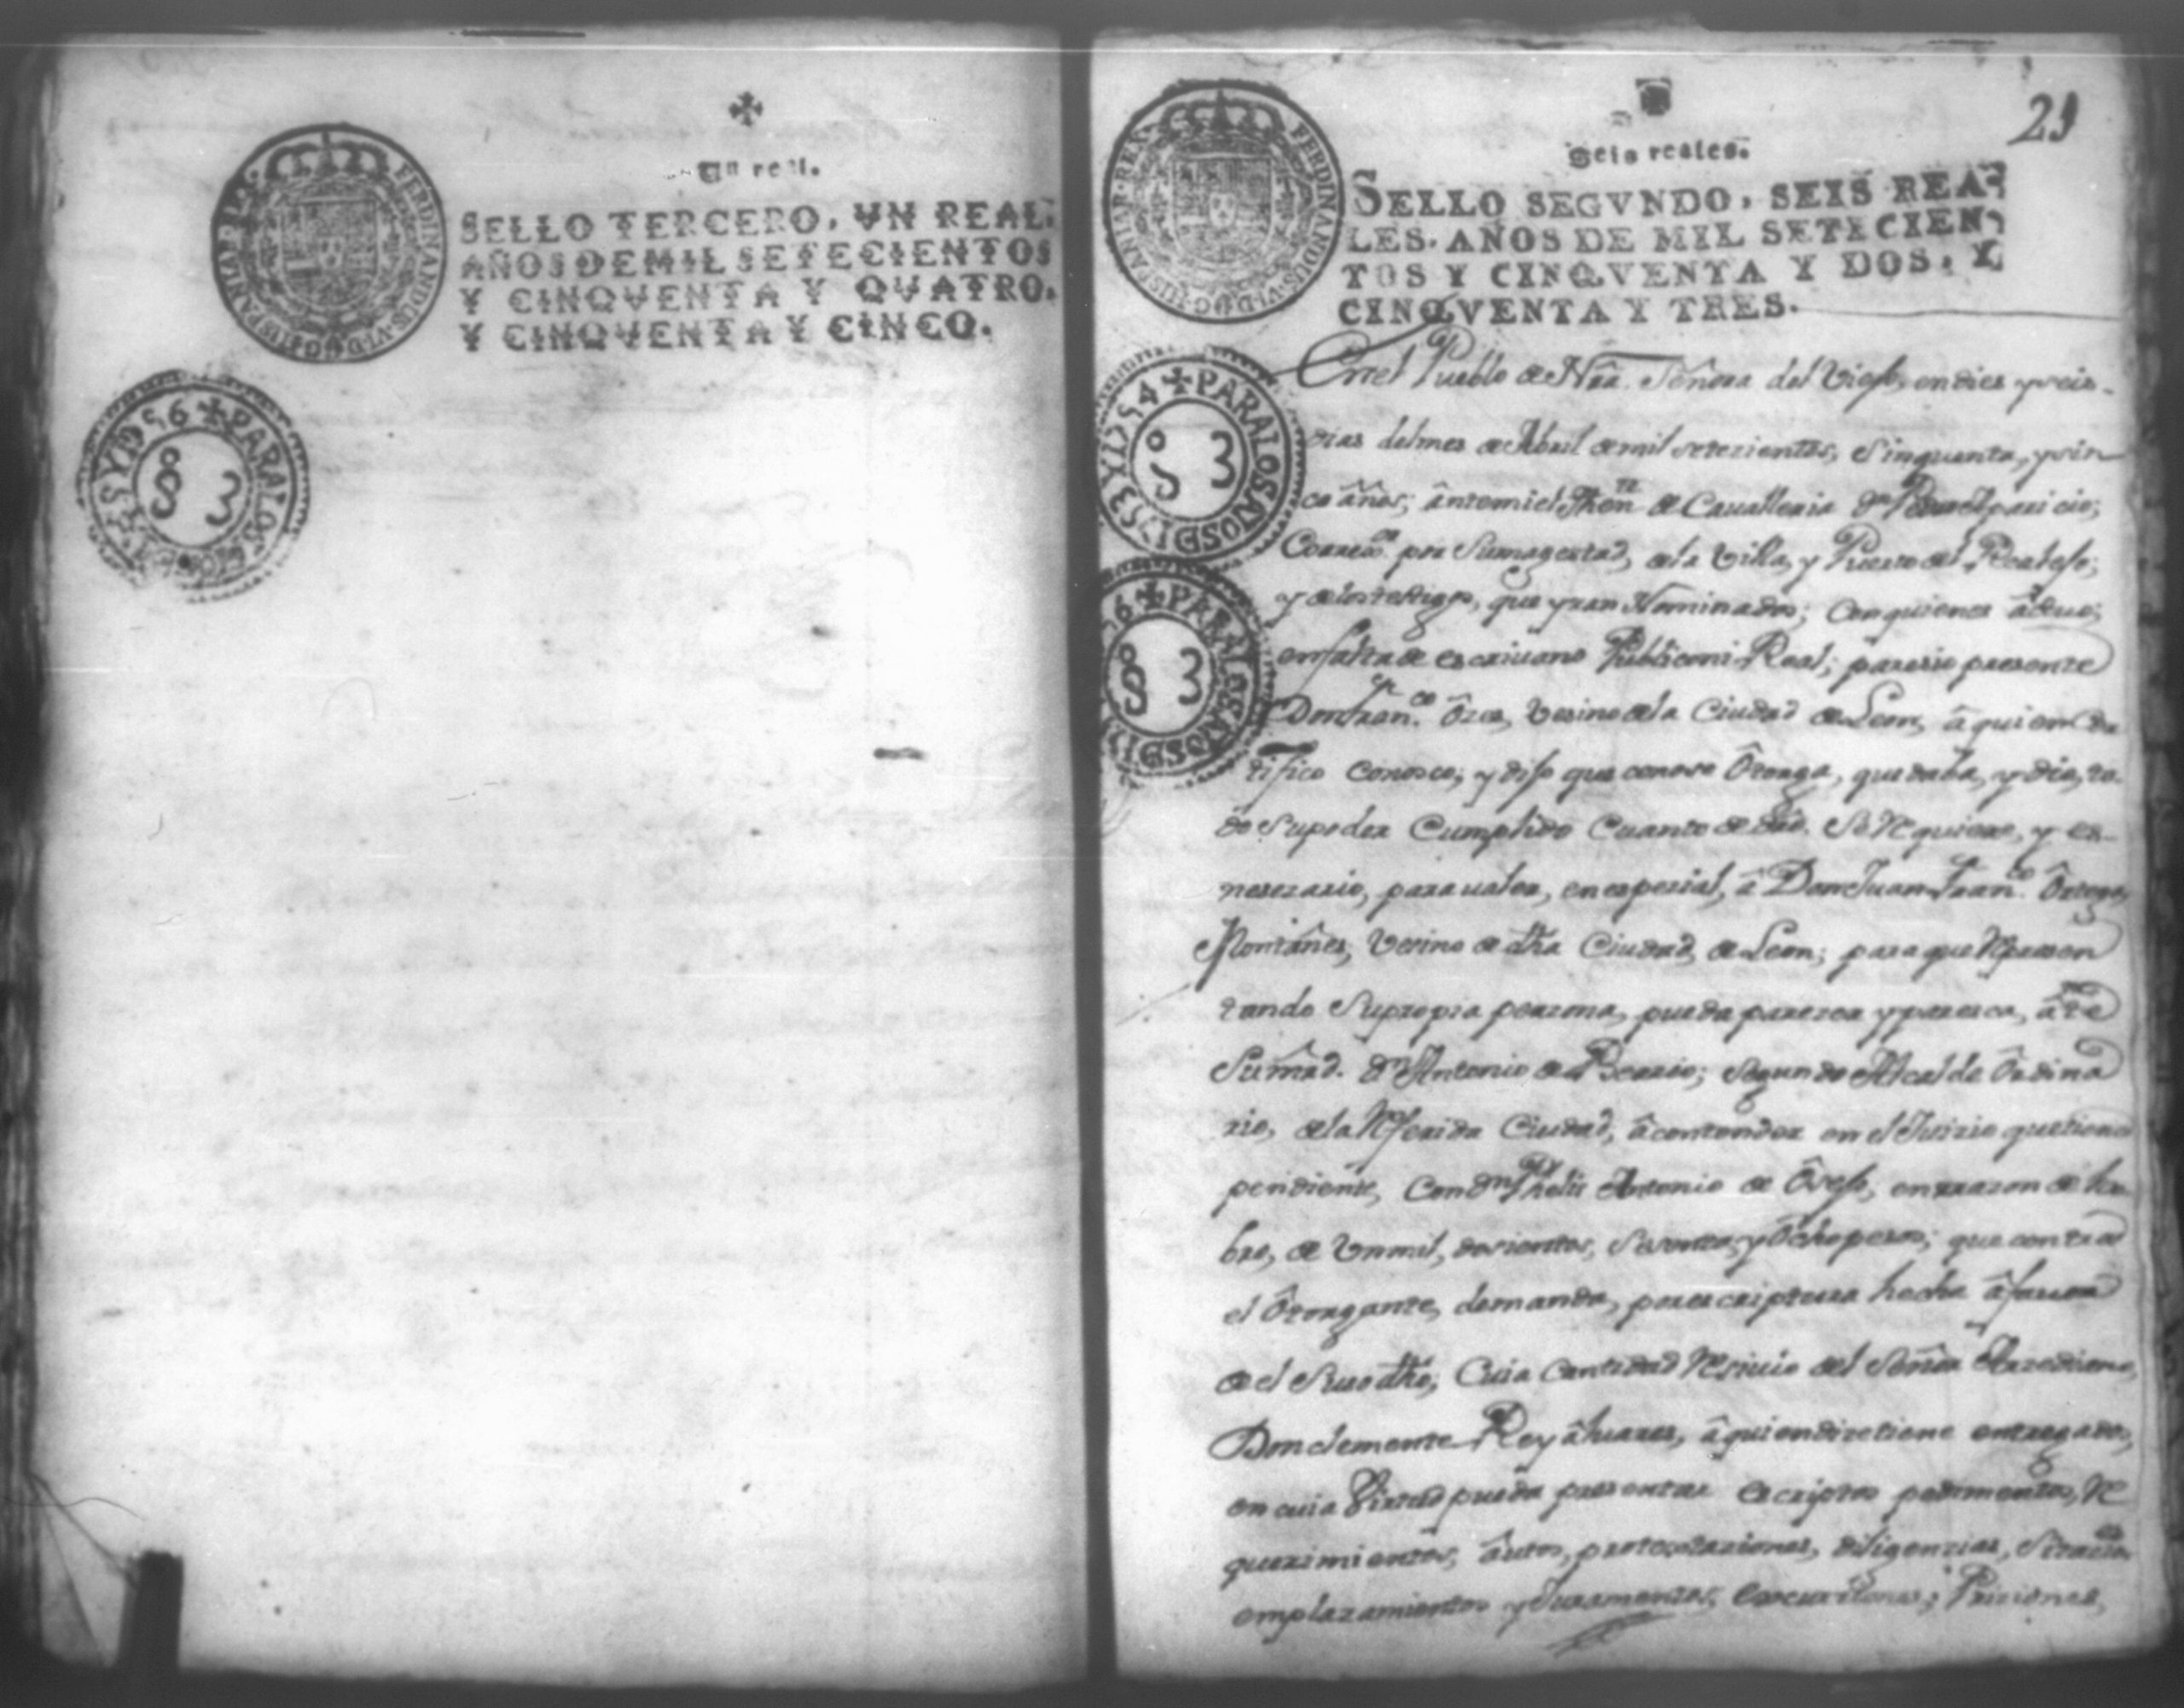 Un real.
SELLO TERCERO, VN REAL,
AÑOS DE MIL SETECIENTOS
Y CINQVENTA Y QVATRO,
Y CINQVENTA Y CINCO.
HISPANIAR REX FERDINANDUS VI D G
PARA LOS AÑOS Y 1756
21
Seis reales.
SELLO SEGVNDO, SEIS REA-
LES. AÑOS DE MIL SETECIEN-
TOS Y CINQVENTA Y DOS, Y
CINQVENTA Y TRES.
HISPANIAR REX FERDINANDUS VI D G
PARA LOS AÑOS DE 1753 Y 1754
PARA LOS AÑOS DE
En el Pueblo de Nrã. Señora del Viejo, en dies y seis
dias del mes de Abril de mil setezientos, Sinquenta, y sin
co años; ante mi el Then.te de Cavalleria Dn Aparicio;
Correxor por Su magestad, de la Villa, y Puerto del Realejo;
y de los testigos, que yran Nominados; con quienes actuo;
en falta de escrivano Publico ni Real; paresio presente
Don Fran.co Vesino de la Ciudad de Leon, a quien Cer
tifico conosco; y dijo que otorga, que daba, y dio, to
do Su poder Cumplido Cuanto de dro. Se Requiere, y es
nesezario, para valer, en espesial, a Don Juan Fran.co Ortega
Montañes, Vesino de dha Ciudad de Leon; para que Represen
tando Su propia perzona, pueda parezer y paresca, ante
Su mrd. Dn Antonio de Berrio; Segundo Alcalde Ordina
rio, de la Referida Ciudad, a contender en el Juizio que tiene
pendiente, Con Dn Phelis Antonio de en rrazon de Co
bro, de Un mil, dosientos, y Ocho pesos; que contra
el Otorgante, demanda, por escriptura hecha a favor
de el Susodho; Cuia Cantidad Resivio del Señor Arzediano
Don Clemente Rey Alvares, a quien dise tiene entregado,
en cuia Virtud pueda presentar escriptos pedimentos, Re
querimientos, autos, protestaziones, diligenzias,
emplazamientos y Juramentos, execuziones; Prisiones,